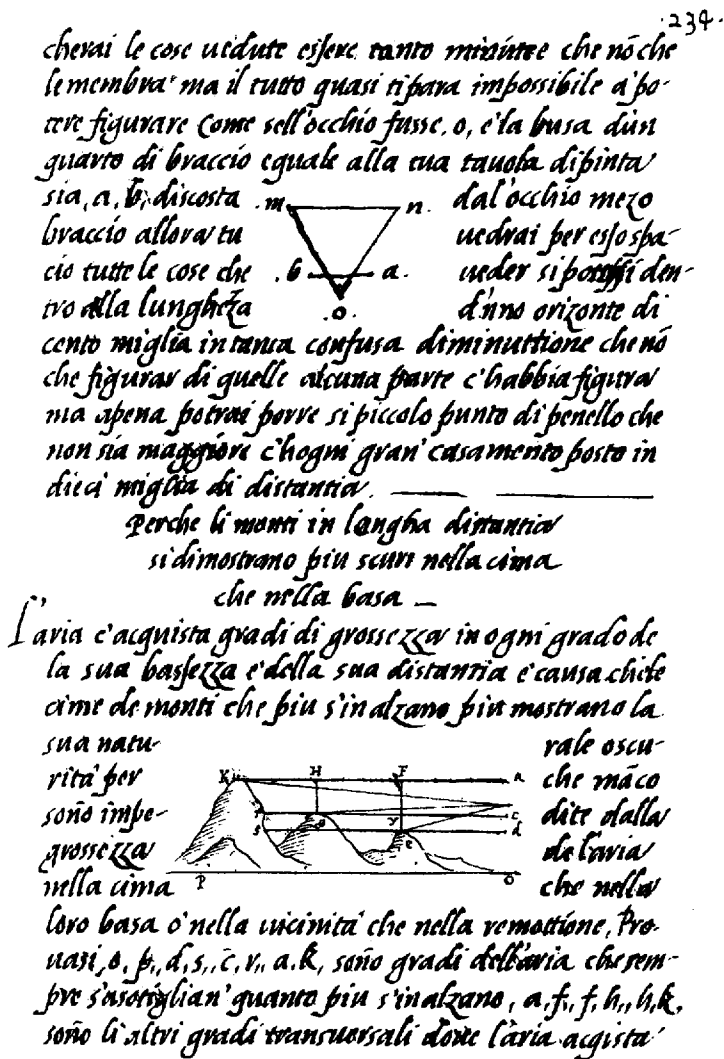 .234.
cherai le cose uedute essere tanto minime che nō che
le membra ma il tutto quasi ti para impossibile a' po-
tere figurare Come sell'occhio fusse, o, e' la busa dun
quarto di braccio eguale alla tua tauola dipinta
sia, a, b, discosta .m n. dal'occhio mezo
braccio allora tu uedrai per esso spa-
cio tutte le cose che .b a. ueder si possi den-
tro alla lunghezza .o. d'uno orizonte di
cento miglia in tanta confusa diminuttione che nō
che figurar di quelle alcuna parte c'habbia figura
ma apena potrai porre si piccolo punto di penello che
non sia maggiore c'hogni gran' casamento posto in
dieci miglia di distantia.
Perche li monti in longha distantia
si dimostrano piu scuri nella cima
che nella basa
L'aria c'acquista gradi di grossezza in ogni grado de
la sua bassezza e' della sua distantia e' causa che le
cime de monti che piu s'inalzano piu mostrano la
sua natu- rale oscu-
rita' per K H F a che māco
soño impe- c dite dalla
s r d
grossezza e de l'aria
nella cima P O che nella
loro basa o' nella uicinita' che nella remottione, Pro-
uasi, o, p,, d, s,, c, r,, a. k, soño gradi dell'aria che sem-
pre s'asotiglian' quanto piu s'inalzano, a, f,, f, h,, h, k,
soño li altri gradi transuersali doue l'aria acqista